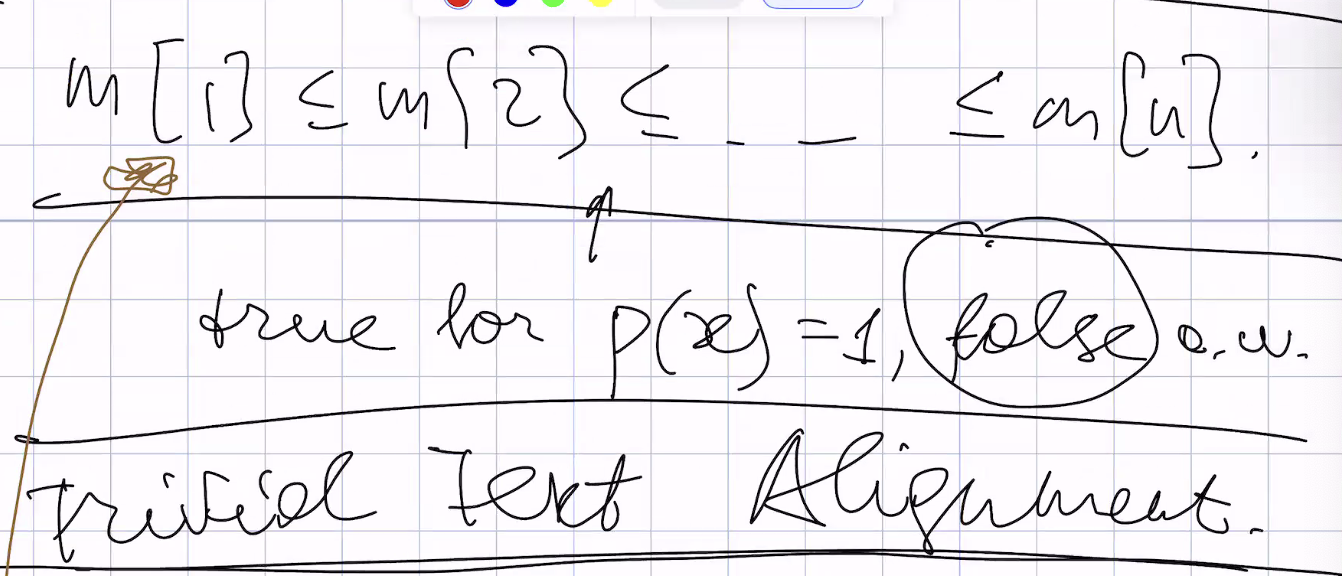 m[1] ≤ m[2] ≤ _ _ ≤ m[n].
true for p(x) = 1, false o.w.
Trivial Text Alignment.